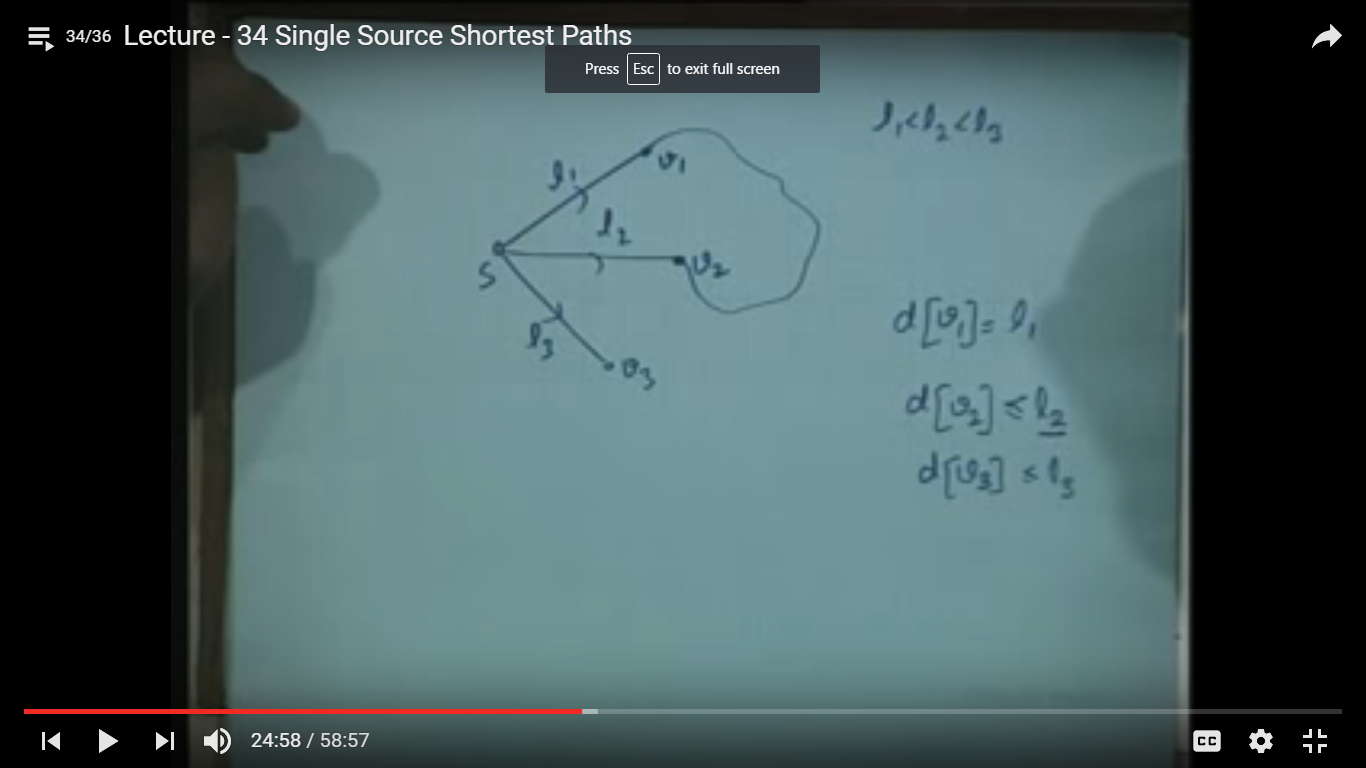 34/36 Lecture - 34 Single Source Shortest Paths
Press Esc to exit full screen
l₁<l₂<l₃
l₁
v₁
l₂
S
v₂
l₃
v₃
d[v₁]= l₁
d[v₂] ≤ l₂
d[v₃] ≤ l₃
24:58 / 58:57
CC